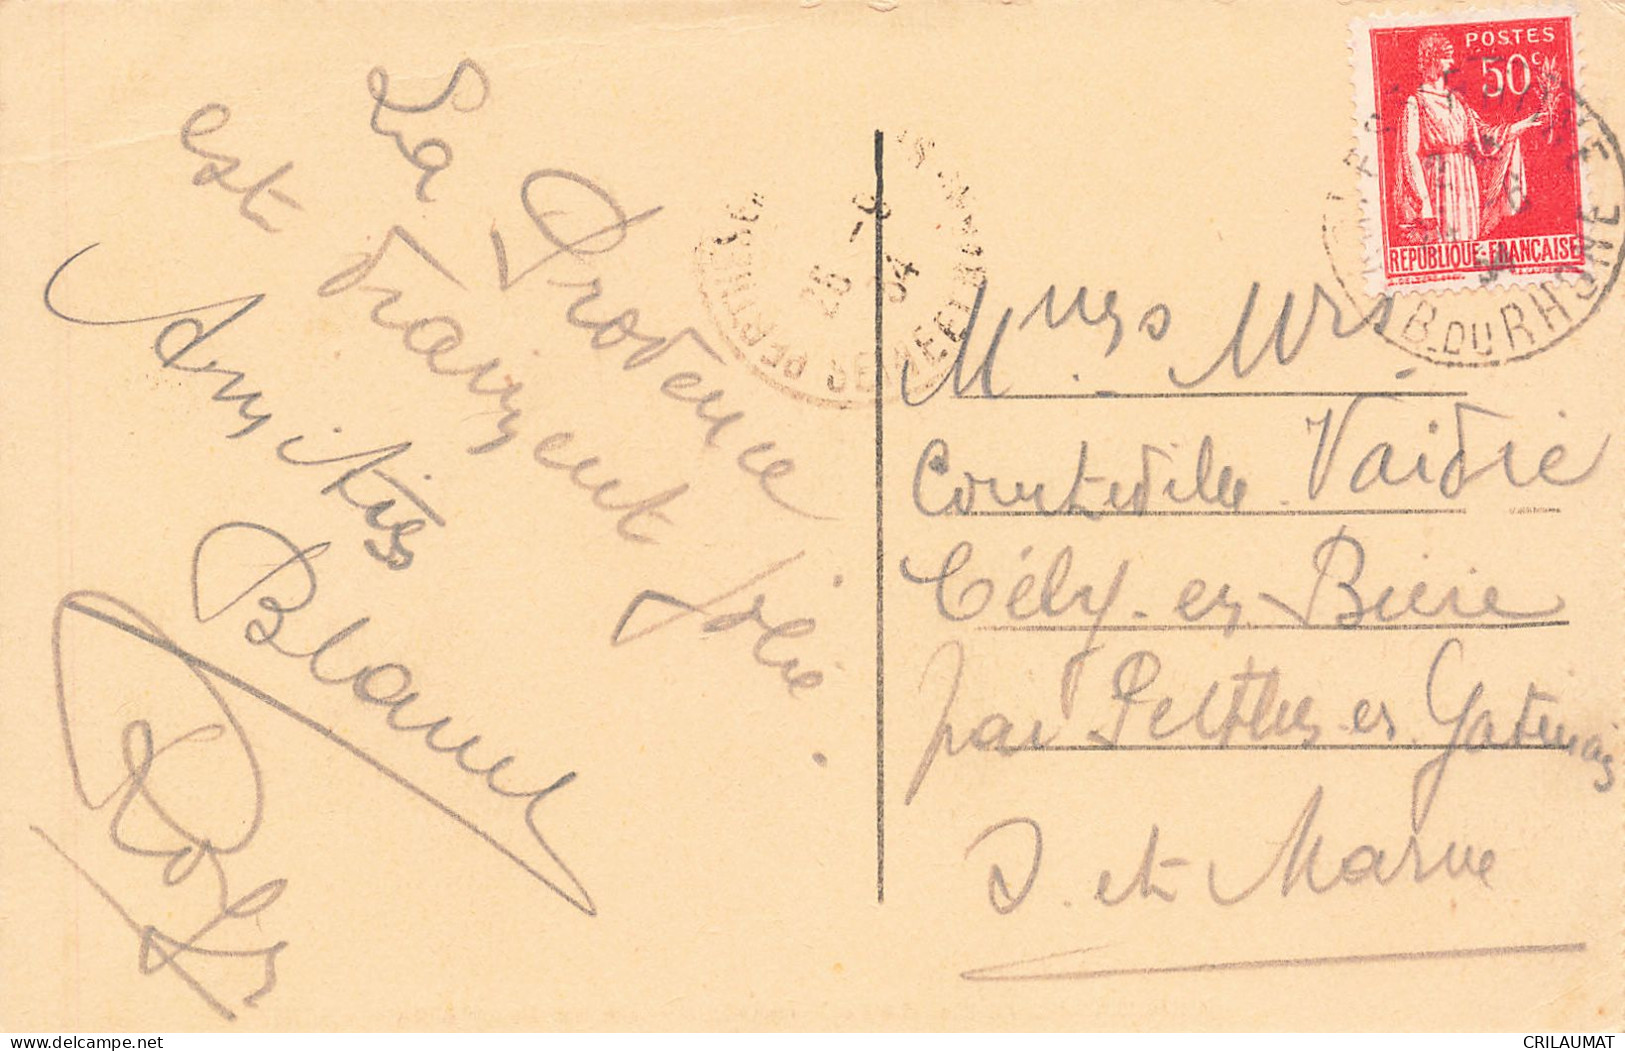 La Provence
est vraiment jolie.
Amitiés
Blanel
POSTES
50c
REPUBLIQUE FRANÇAISE
B. DU RHONE
25 -6
34
SEINE ET
Courteville Vaidie
Cély-en-Bière
par Perthes en Gatinais
S. et Marne
CRILAUMAT